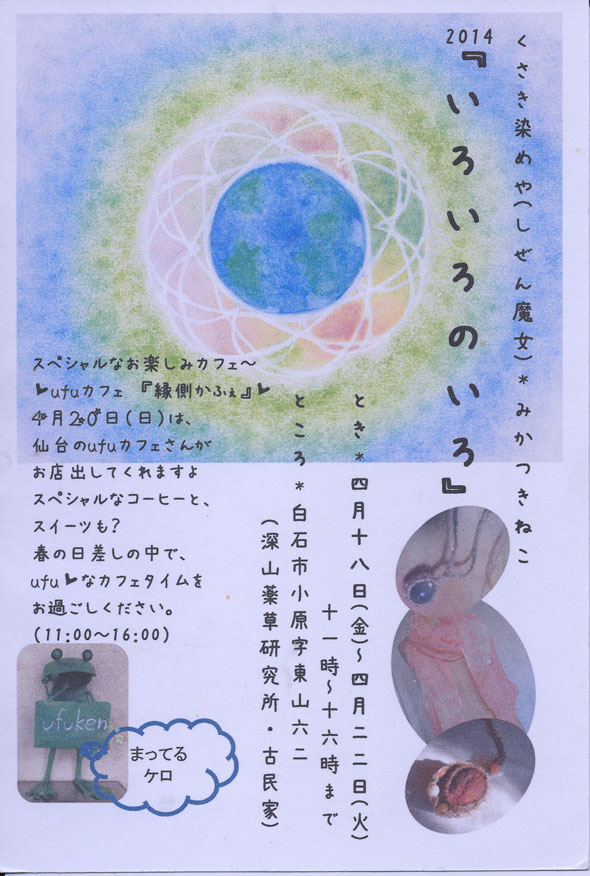 くさき染めや(しぜん魔女)*みかつきねこ
2014
『いろいろのいろ』
とき*四月十八日(金)〜四月二二日(火)
十一時〜十六時まで
ところ*白石市小原字東山六二
(深山薬草研究所・古民家)
スペシャルなお楽しみカフェ〜
ufuカフェ『縁側かふぇ』
4月20日(日)は、
仙台のufuカフェさんが
お店出してくれますよ
スペシャルなコーヒーと、
スイーツも?
春の日差しの中で、
ufu♥なカフェタイムを
お過ごしください。
(11:00〜16:00)
ufuken
まってる
ケロ